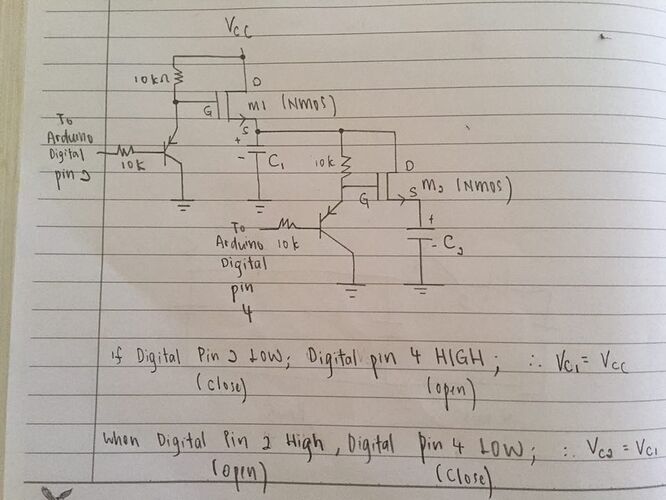 Vcc
10kΩ
D
G
M1 (NMOS)
S
To
Arduino
Digital
pin 2
10k
+
-
C1
10k
D
G
S
M2 (NMOS)
To
Arduino
Digital
pin
4
10k
+
-
C2
if Digital Pin 2 LOW; Digital pin 4 HIGH; ∴ VC1 = Vcc
(close) (open)
When Digital Pin 2 High, Digital pin 4 LOW; ∴ VC2 = VC1
(open) (close)